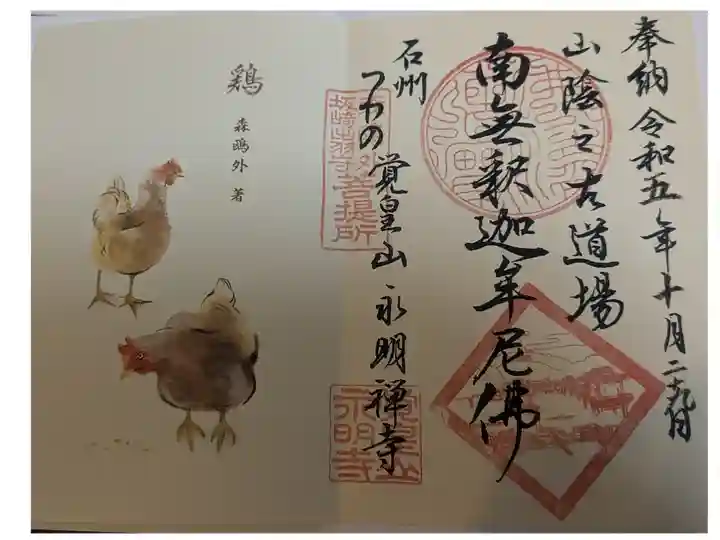 奉納 令和五年十月二十九日
山陰之古道場
南無釈迦牟尼佛
石州
つわの 覚皇山 永明禅寺
菩提所
覚皇山
永明寺
鶏
森鴎外 著